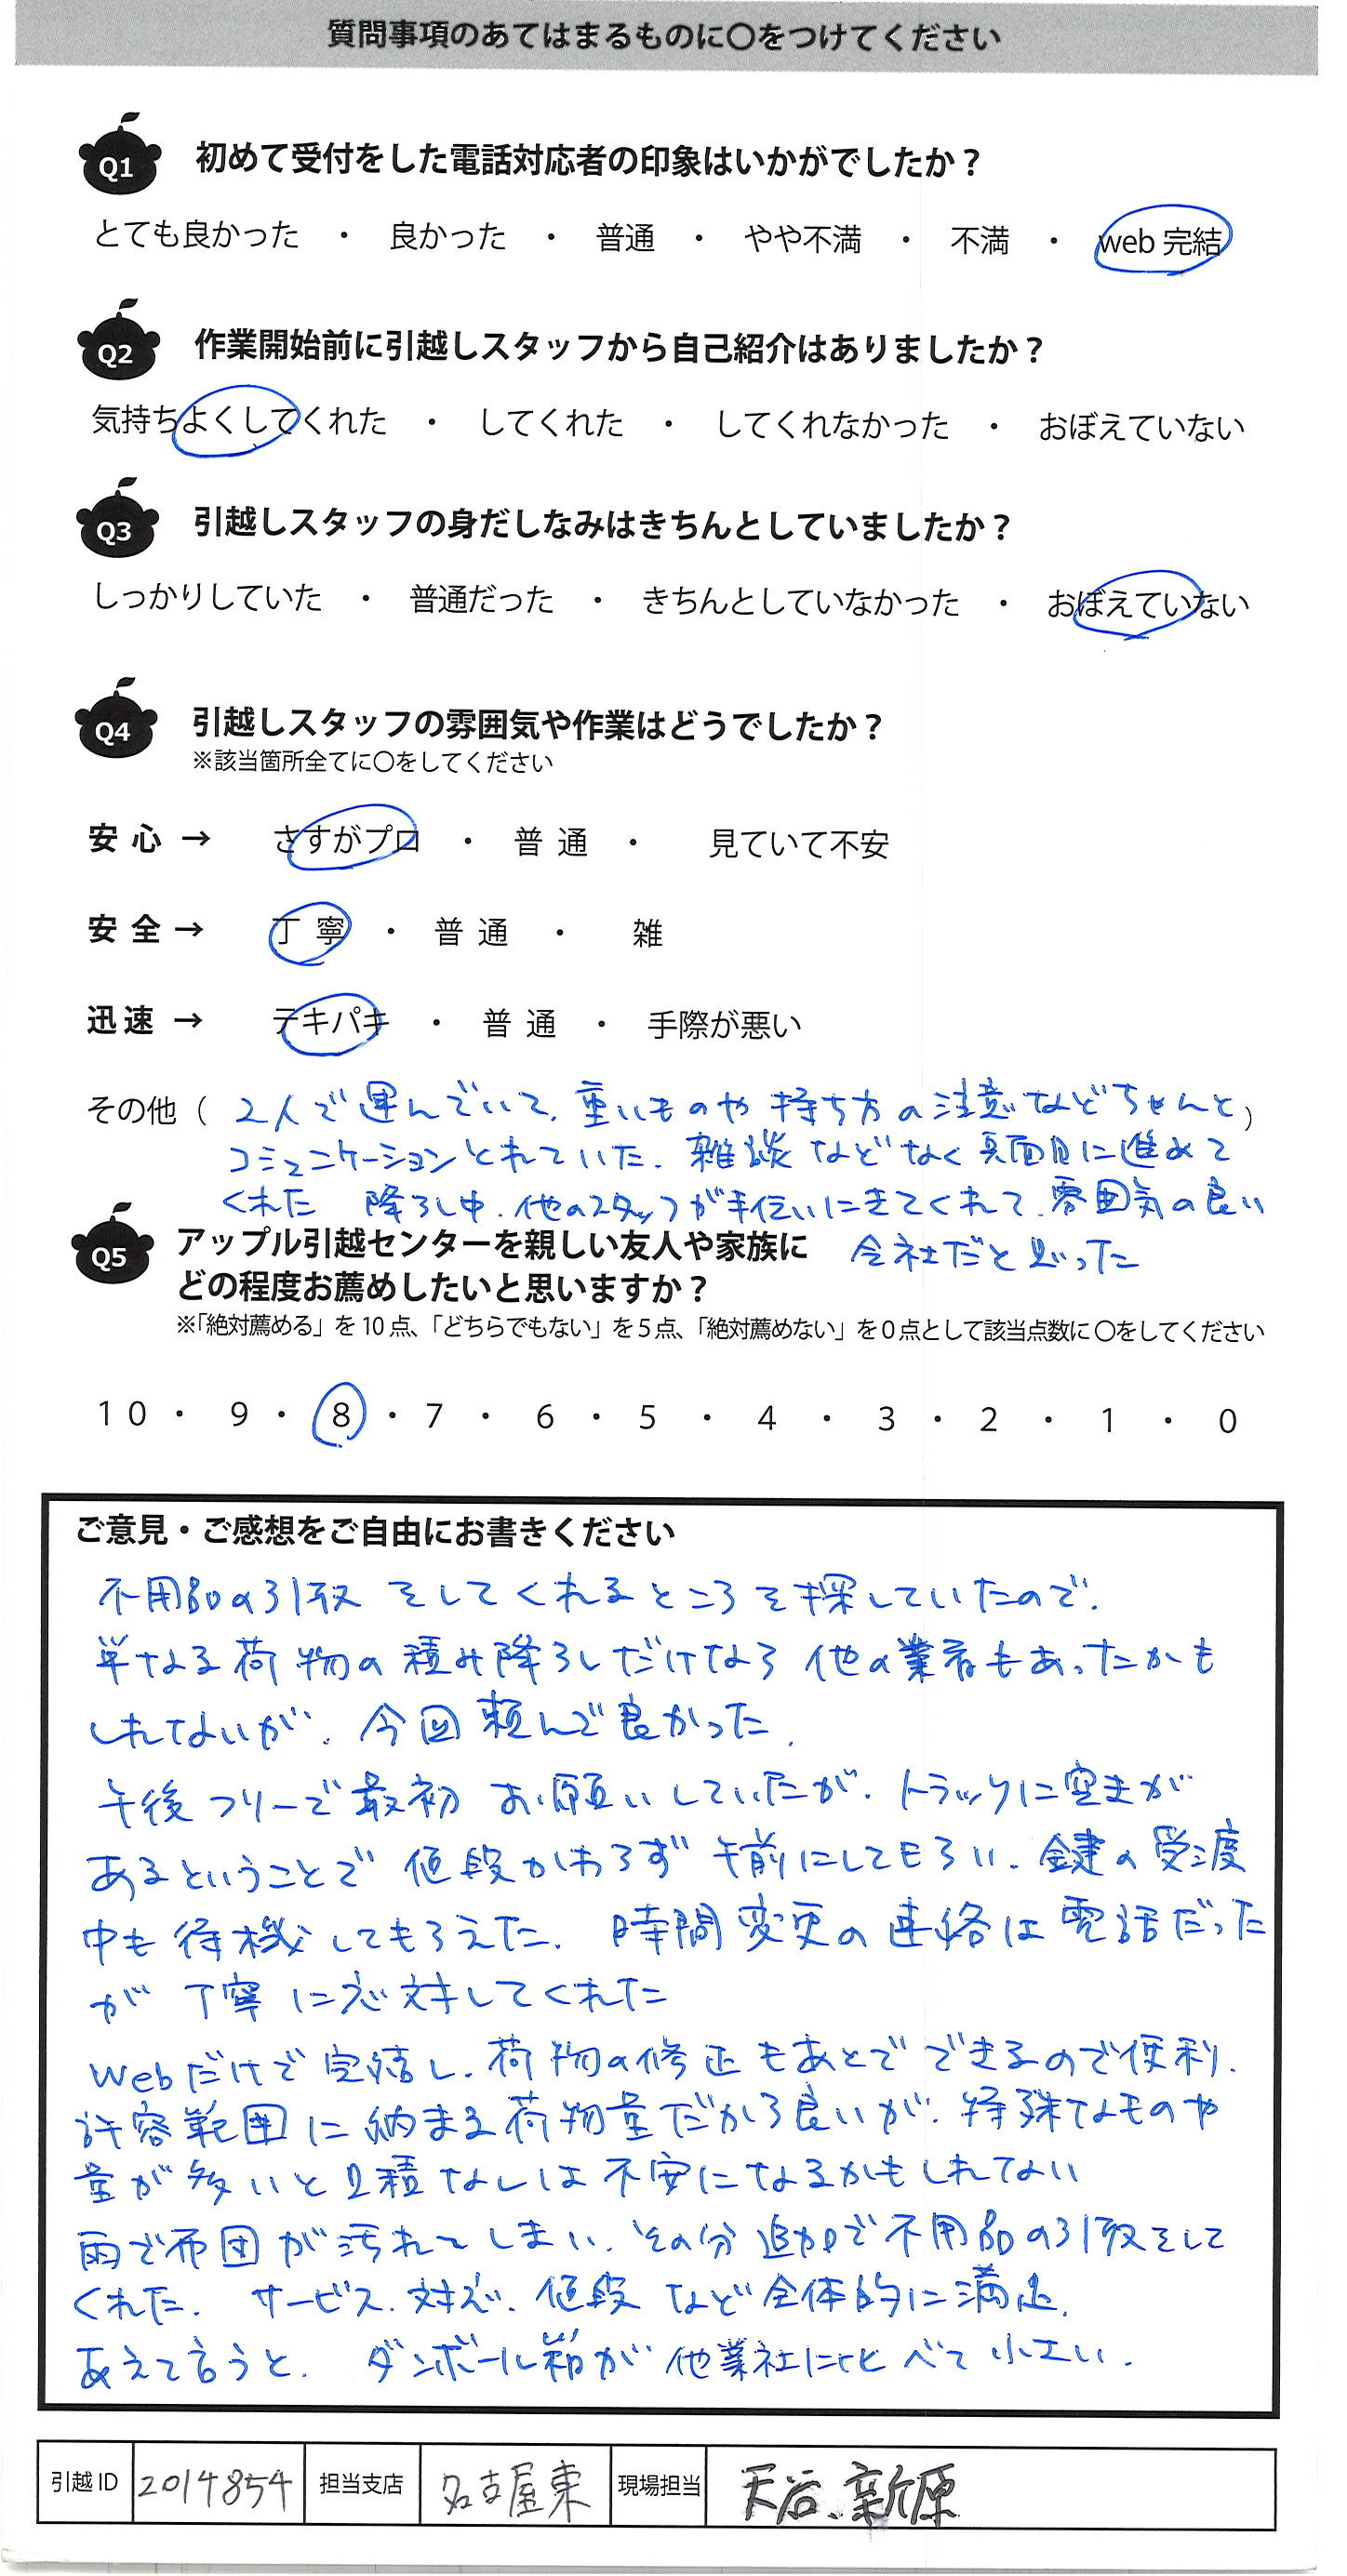 質問事項のあてはまるものに〇をつけてください
Q1 初めて受付をした電話対応者の印象はいかがでしたか？
とても良かった ・ 良かった ・ 普通 ・ やや不満 ・ 不満 ・ web 完結
Q2 作業開始前に引越しスタッフから自己紹介はありましたか？
気持ちよくしてくれた ・ してくれた ・ してくれなかった ・ おぼえていない
Q3 引越しスタッフの身だしなみはきちんとしていましたか？
しっかりしていた ・ 普通だった ・ きちんとしていなかった ・ おぼえていない
Q4 引越しスタッフの雰囲気や作業はどうでしたか？
※該当箇所全てに〇をしてください
安心 → さすがプロ ・ 普通 ・ 見ていて不安
安全 → 丁寧 ・ 普通 ・ 雑
迅速 → テキパキ ・ 普通 ・ 手際が悪い
その他（ 2人で運んでいて、重いものや持ち方の注意などちゃんと）
コミュニケーションとれていた。雑談などなく真面目に進めて
くれた 降ろし中、他のスタッフが手伝いにきてくれて、雰囲気の良い
会社だと思った
Q5 アップル引越センターを親しい友人や家族に
どの程度お薦めしたいと思いますか？
※「絶対薦める」を10点、「どちらでもない」を5点、「絶対薦めない」を0点として該当点数に〇をしてください
10 ・ 9 ・ 8 ・ 7 ・ 6 ・ 5 ・ 4 ・ 3 ・ 2 ・ 1 ・ 0
ご意見・ご感想をご自由にお書きください
不用品の引取をしてくれるところを探していたので、
単なる荷物の積み降ろしだけなら他の業者もあったかも
しれないが、今回頼んで良かった。
午後フリーで最初お願いしていたが、トラックに空きが
あるということで値段かわらず午前にしてもらい、鍵の受渡
中も待機してもらえた。時間変更の連絡は電話だった
が丁寧に応対してくれた
Webだけで完結し、荷物の修正もあとでできるので便利。
許容範囲に納まる荷物量だから良いが、特殊なものや
量が多いと見積なしは不安になるかもしれない
雨で布団が汚れてしまい、その分追加で不用品の引取をして
くれた。サービス、対応、値段など全体的に満足。
あえて言うと、ダンボール箱が他業社に比べて小さい。
引越ID 2014854 担当支店 名古屋東 現場担当 天谷、新原